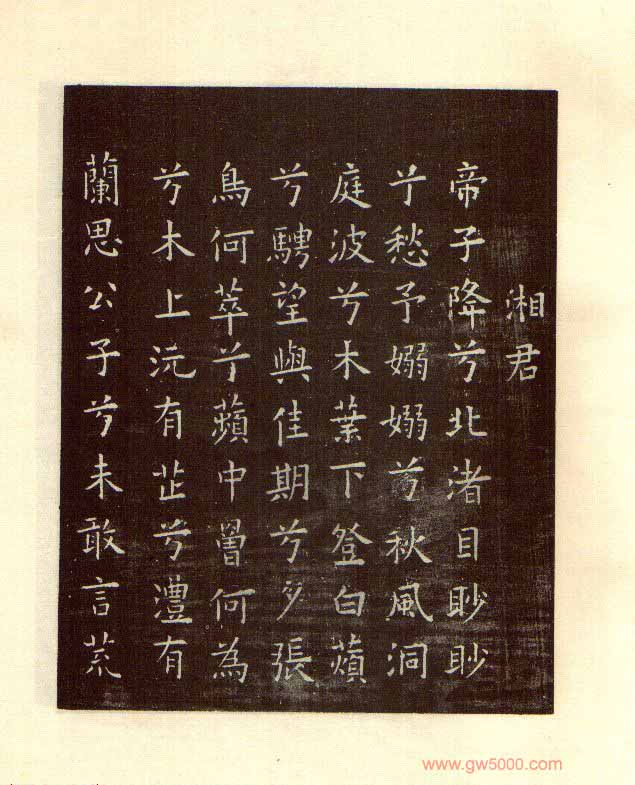 湘君
帝子降兮北渚目眇眇
兮愁予嫋嫋兮秋風洞
庭波兮木葉下登白薠
兮騁望與佳期兮夕張
鳥何萃兮蘋中罾何為
兮木上沅有芷兮澧有
蘭思公子兮未敢言荒
www.gw5000.com